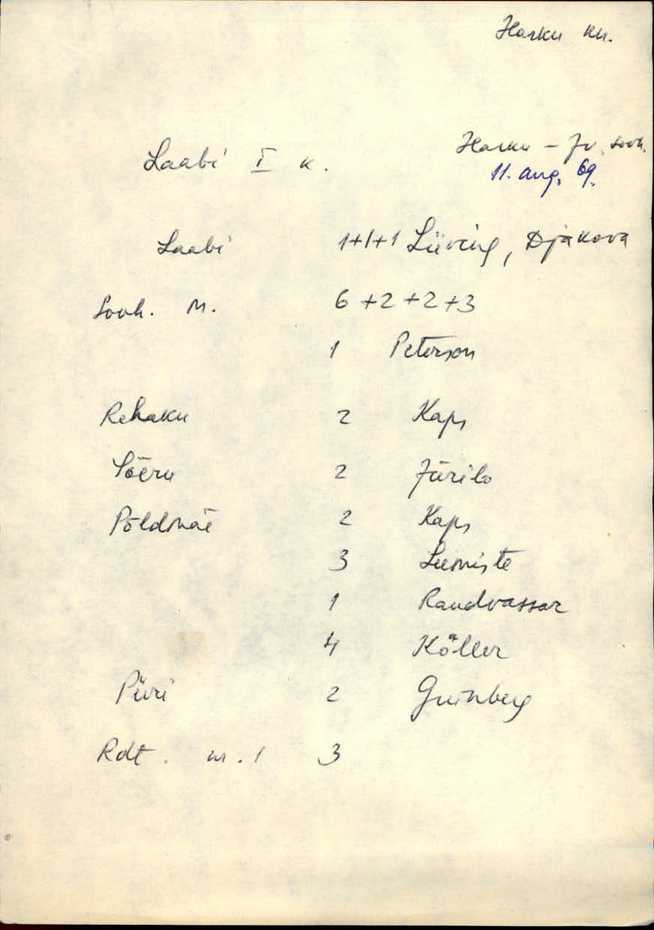 Harku kn.
Harku - Jv. sovh.
11. aug. 69.
Laabi I k.
Laabi 1+1+1 Liiving, Djakova
Sovh. M. 6+2+2+3
1 Peterson
Rehaku 2 Kaps
Sõeru 2 Jürilo
Põldmäe 2 Kaps
3 Lumiste
1 Randvassar
4 Köller
Piiri 2 Grünberg
Rdt. nr. 1 3